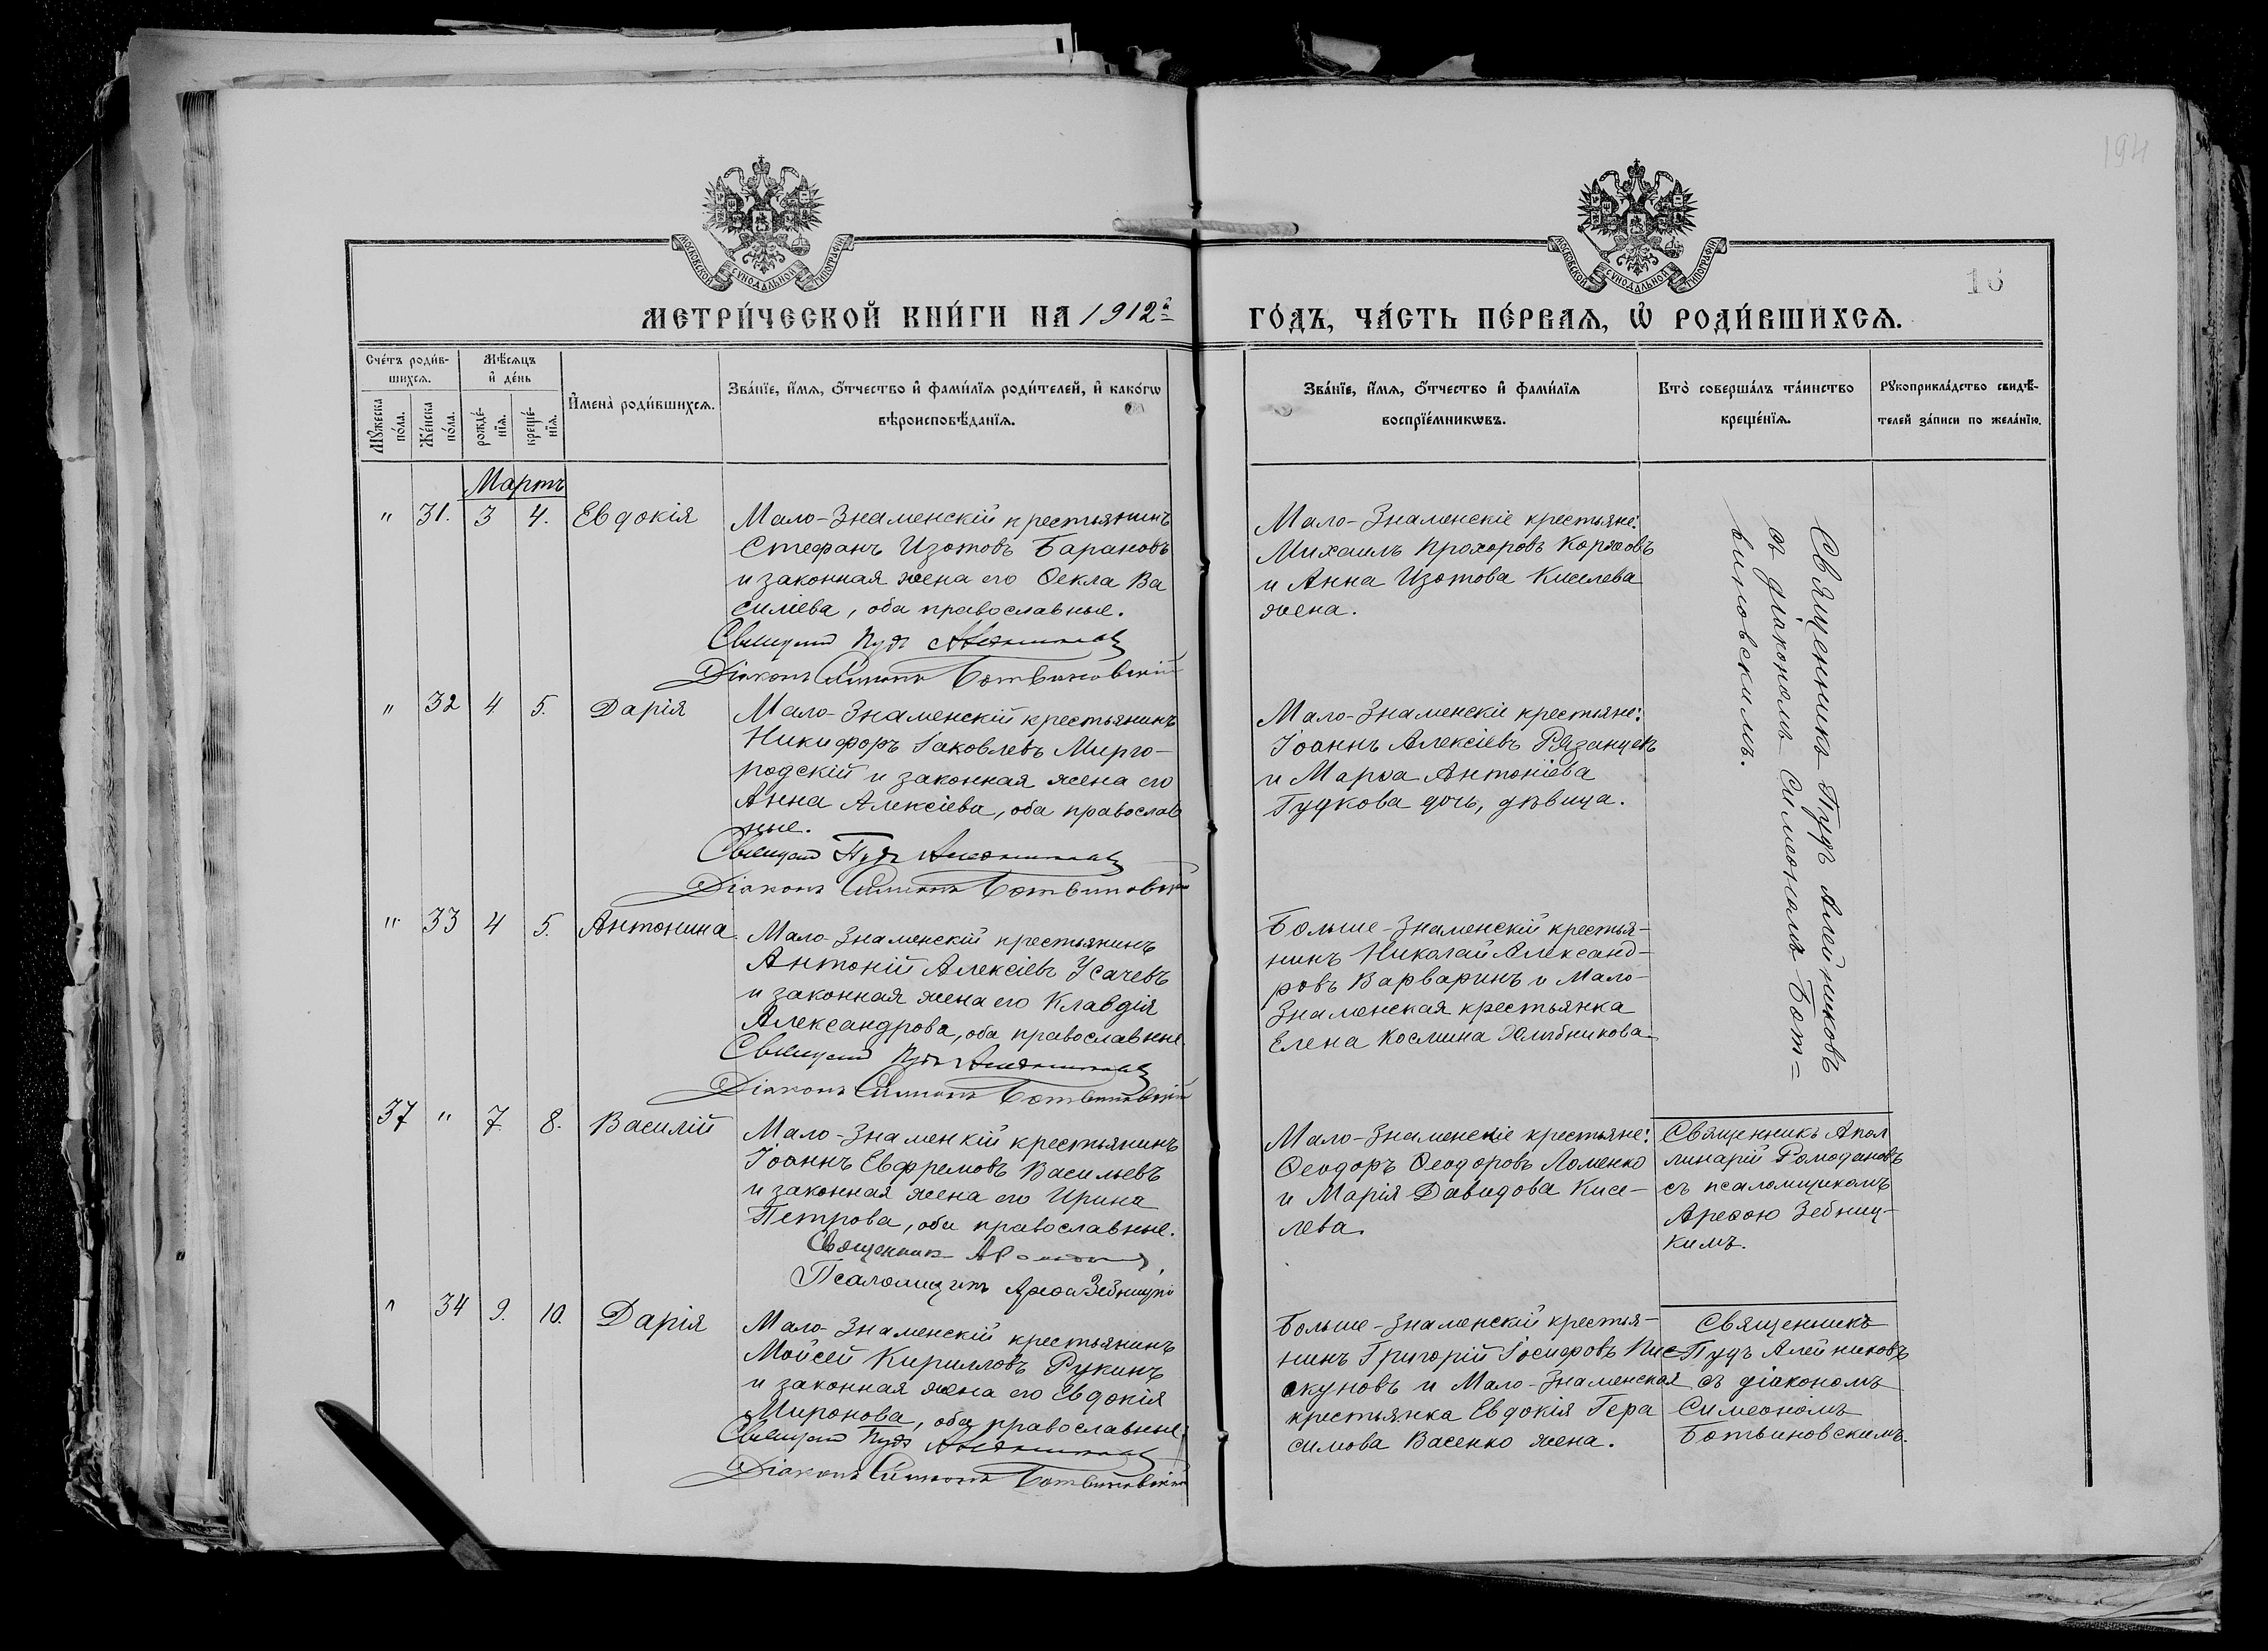 194
МОСКОВСКОЙ СѴНОДАЛЬНОЙ ТИПОГРАФІИ
МОСКОВСКОЙ СѴНОДАЛЬНОЙ ТИПОГРАФІИ
16
МЕТРИ́ЧЕСКОЙ КНИ́ГИ НА 1912й ГО́ДЪ, ЧА́СТЬ ПЕ́РВАЯ, Ѽ РОДИ́ВШИХСЯ.
Сче́тъ роди́в-
шихся.
Мѣ́сяцъ
и҆ де́нь
Мꙋ́жеска по́ла.
Же́нска по́ла.
рожде́-нїя.
креще́-нїя.
И҆мена̀ роди́вшихся.
Зва́нїе, и҆́мя, ѻ҆́тчество и҆ фами́лїя роди́телей, и҆ како́гѡ
вѣроисповѣ́данїя.
Зва́нїе, и҆́мя, ѻ҆́тчество и҆ фами́лїя
воспрїе́мникѡвъ.
Кто̀ соверша́лъ та́инство
креще́нїя.
Рꙋкоприкла́дство свидѣ́-
телей за́писи по жела́нїю.
Мартъ
" 31. 3 4. Евдокія
Мало-Знаменскій крестьянинъ
Стефанъ Изотовъ Барановъ
и законная жена его Ѳекла Ва
силіева, оба православные.
Священникъ Пудъ Алейниковъ
Діаконъ Симеонъ Ботвиновскій
Мало-Знаменскіе крестьяне:
Михаилъ Прохоровъ Коржовъ
и Анна Изотова Киселева
жена.
Священникъ Пудъ Алейниковъ
съ діакономъ Симеономъ Бот=
виновскимъ.
" 32 4 5. Дарія
Мало-Знаменскій крестьянинъ
Никифоръ Іаковлевъ Мирго-
родскій и законная жена его
Анна Алексіева, оба православ
ные.
Священникъ Пудъ Алейниковъ
Діаконъ Симеонъ Ботвиновскій
Мало-Знаменскіе крестьяне:
Іоаннъ Алексіевъ Рязанцевъ
и Марѳа Антоніева
Гудкова дочь, дѣвица.
" 33 4 5. Антонина
Мало-Знаменскій крестьянинъ
Антоній Алексіевъ Усачевъ
и законная жена его Клавдія
Александрова, оба православные
Священникъ Пудъ Алейниковъ
Діаконъ Симеонъ Ботвиновскій
Больше-Знаменскій крестья-
нинъ Николай Александ-
ровъ Варваринъ и Мало-
Знаменская крестьянка
Елена Космина Хлѣбникова
37 " 7. 8. Василій
Мало-Знаменкій крестьянинъ
Іоаннъ Евфремовъ Васильевъ
и законная жена его Ирина
Петрова, оба православные.
Священникъ
Псаломщикъ Арефа Зебницкі
Мало-Знаменскіе крестьяне:
Ѳеодоръ Ѳеодоровъ Ломенко
и Марія Давидова Кисе-
лева.
Священникъ Апол
линарій Ромодановъ
съ псаломщикомъ
Арефою Зебниц-
кимъ.
" 34 9. 10. Дарія
Мало-Знаменскій крестьянинъ
Мойсей Кирилловъ Рукинъ
и законная жена его Евдокія
Миронова, оба православные.
Священникъ Пудъ Алейниковъ
Діаконъ Симеонъ Ботвиновскій
Больше-Знаменскій крестья-
нинъ Григорій Іосифовъ Пис-
куновъ и Мало-Знаменская
крестьянка Евдокія Гера
симова Васенко жена.
Священникъ
Пудъ Алейниковъ
съ діакономъ
Симеономъ
Ботвиновскимъ.